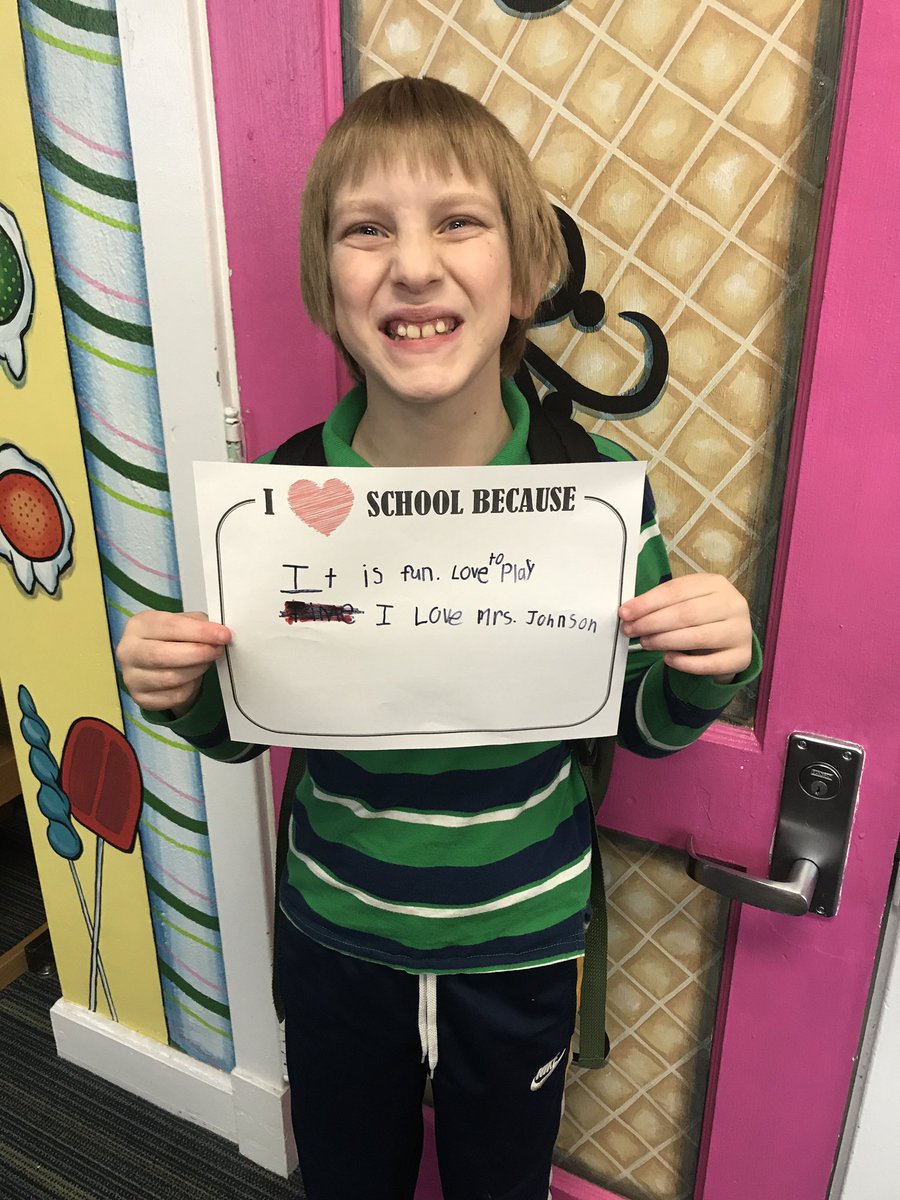 I ❤ SCHOOL BECAUSE
It is fun. Love to Play
I Love Mrs. Johnson
NIKE